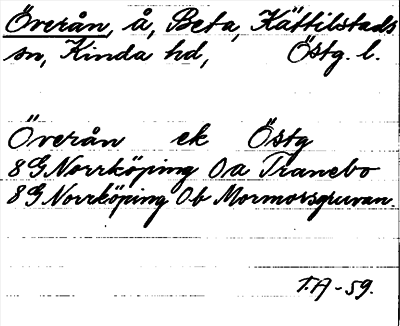 Överån, å, Beta, Kättilstads
sn, Kinda hd, Östg. l.
Överån ek Östg
8 G Norrköping 0a Tranebo
8 G Norrköping 0b Mormorsgruvan.
T.A-59.